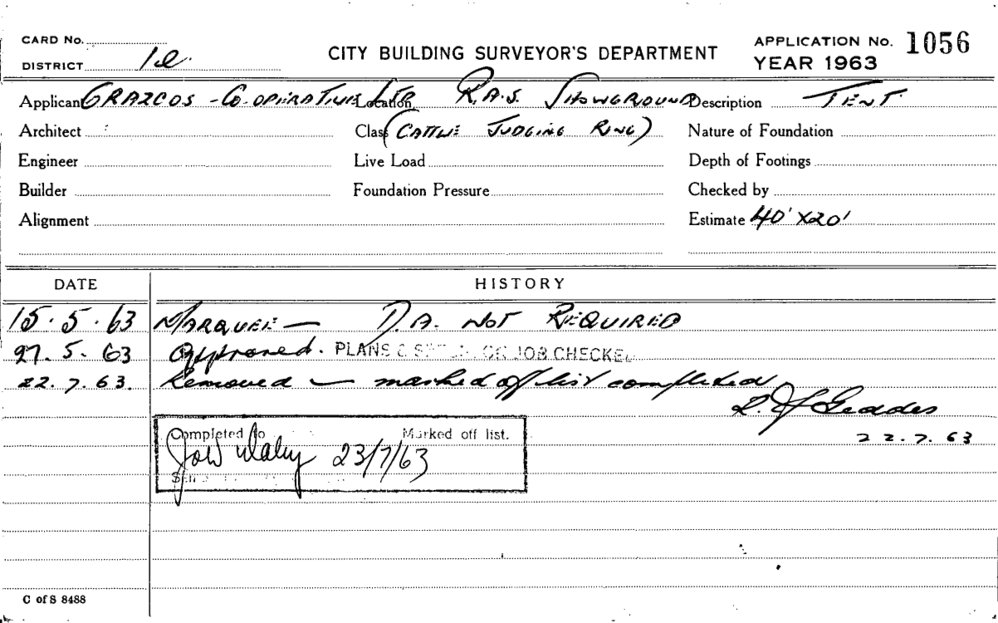 CARD No.
DISTRICT
CITY BUILDING SURVEYOR'S DEPARTMENT
APPLICATION No. 1056
YEAR 1963
Applicant GRAZCOS - CO-OPERATIVE LTD Location R.A.S. SHOWGROUND Description TENT
Architect Class (CATTLE JUDGING RING) Nature of Foundation
Engineer Live Load Depth of Footings
Builder Foundation Pressure Checked by
Alignment Estimate 40' X 20'
DATE HISTORY
15.5.63 MARQUEE — D.A. NOT REQUIRED
27.5.63 Approved. PLANS & JOB CHECKED
22.7.63. Removed — marked off list completed
Geddes
22.7.63
Completed Marked off list.
23/7/63
C of S 8488